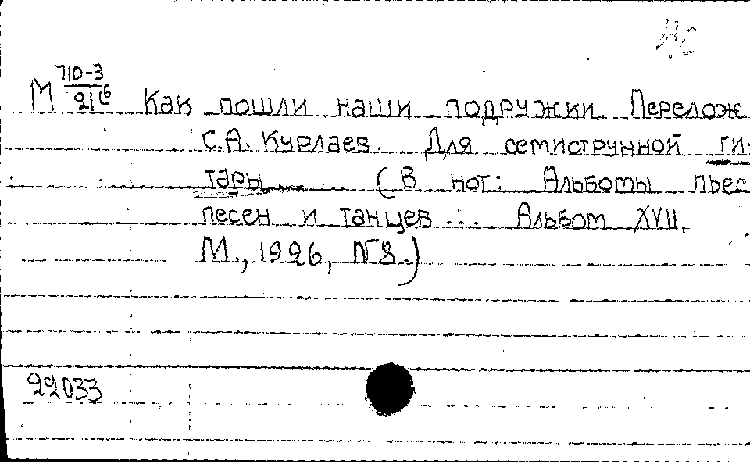 НС
М 710-3
216
Как пошли наши подружки. Перелож
С.А. Курлаев. Для семиструнной ги-
тары (В нот: Альбомы пьес
песен и танцев... Альбом XVII.
М., 1996, N 8.)
22033